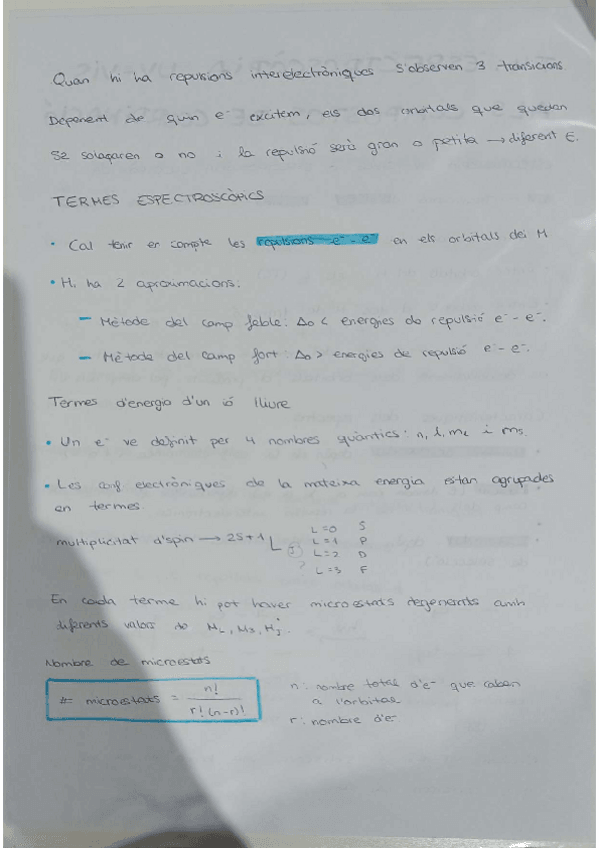 Quan hi ha repulsions interelectròniques s'observen 3 transicions
Depenent de quin e⁻ excitem, els dos orbitals que quedan
se solaparen o no i la repulsió serà gran o petita → diferent E.
TERMES ESPECTROSCÒPICS
• Cal tenir en compte les repulsions e⁻ - e⁻ en els orbitals del M
• Hi ha 2 aproximacions.
– Mètode del camp feble: Δo < energies de repulsió e⁻ - e⁻.
– Mètode del camp fort: Δo > energies de repulsió e⁻ - e⁻.
Termes d'energia d'un ió lliure
• Un e⁻ ve definit per 4 nombres quàntics: n, l, mₗ i mₛ.
• Les conf electròniques de la mateixa energia estan agrupades
en termes.
multiplicitat d'spin → 2S+1 L (J) ?
L=0 S
L=1 P
L=2 D
L=3 F
En cada terme hi pot haver microestats degenerats amb
diferents valors de M_L, M_S, M_J.
Nombre de microestats
# microestats = n! / r!(n-r)!
n: nombre total d'e⁻ que caben
a l'orbital
r: nombre d'e⁻